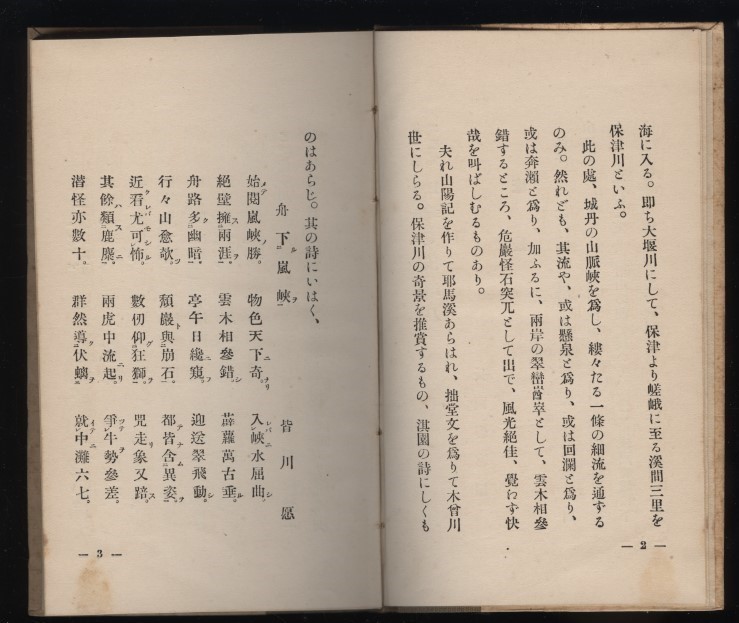 海に入る。即ち大堰川にして、保津より嵯峨に至る溪間三里を
保津川といふ。
此の處、城丹の山脈峽を爲し、縷々たる一條の細流を通ずる
のみ。然れども、其流や、或は懸泉と爲り、或は回瀾と爲り、
或は奔瀨と爲り、加ふるに、兩岸の翠巒崒として、雲木相參
錯するところ、危巖怪石突兀として出で、風光絕佳、覺わず快
哉を叫ばしむるものあり。
夫れ山陽記を作りて耶馬溪あらはれ、拙堂文を爲りて木曾川
世にしらる。保津川の奇景を推賞するもの、淇園の詩にしくも
— 2 —
のはあらじ。其の詩にいはく、
舟下嵐峽 皆川愿
始閱嵐峽勝。 物色天下奇。 入峽水屈曲。
絕壁擁兩涯。 雲木相參錯。 薜蘿萬古垂。
舟路多幽暗。 亭午日纔窺。 迎送翠飛動。
行々山愈欹。 頽巖與崩石。 都皆含異姿。
近看尤可怖。 數仞仰狂獅。 兕走象又踣。
其餘類鹿麋。 兩虎中流起。 爭牛勢參差。
潛怪亦數十。 群然導伏螭。 就中灘六七。
— 3 —